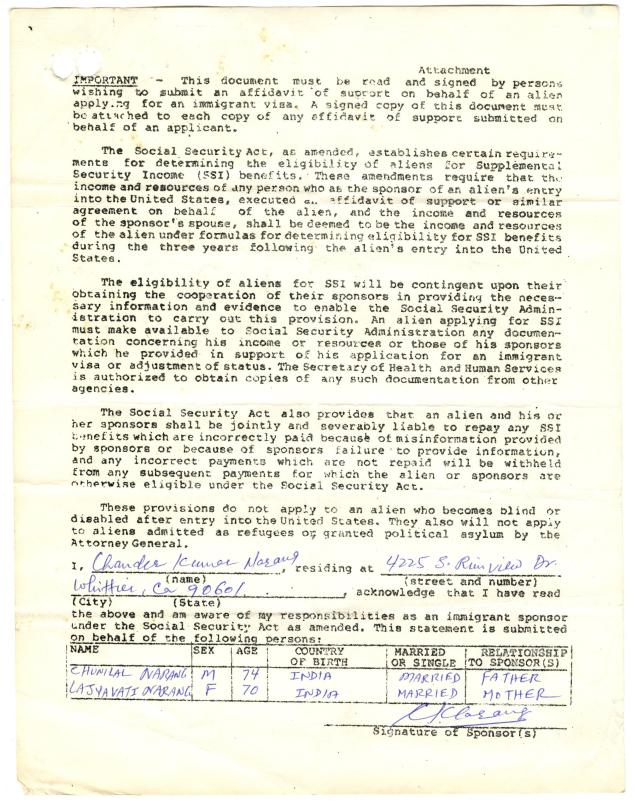 Attachment
IMPORTANT - This document must be read and signed by persons
wishing to submit an affidavit of support on behalf of an alien
applying for an immigrant visa. A signed copy of this document must
be attached to each copy of any affidavit of support submitted on
behalf of an applicant.
The Social Security Act, as amended, establishes certain require-
ments for determining the eligibility of aliens for Supplemental
Security Income (SSI) benefits. These amendments require that the
income and resources of any person who as the sponsor of an alien's entry
into the United States, executed an affidavit of support or similar
agreement on behalf of the alien, and the income and resources
of the sponsor's spouse, shall be deemed to be the income and resources
of the alien under formulas for determining eligibility for SSI benefits
during the three years following the alien's entry into the United
States.
The eligibility of aliens for SSI will be contingent upon their
obtaining the cooperation of their sponsors in providing the neces-
sary information and evidence to enable the Social Security Admin-
istration to carry out this provision. An alien applying for SSI
must make available to Social Security Administration any documen-
tation concerning his income or resources or those of his sponsors
which he provided in support of his application for an immigrant
visa or adjustment of status. The Secretary of Health and Human Services
is authorized to obtain copies of any such documentation from other
agencies.
The Social Security Act also provides that an alien and his or
her sponsors shall be jointly and severably liable to repay any SSI
benefits which are incorrectly paid because of misinformation provided
by sponsors or because of sponsors failure to provide information,
and any incorrect payments which are not repaid will be withheld
from any subsequent payments for which the alien or sponsors are
otherwise eligible under the Social Security Act.
These provisions do not apply to an alien who becomes blind or
disabled after entry into the United States. They also will not apply
to aliens admitted as refugees or granted political asylum by the
Attorney General.
I, Chander Kumar Narang, residing at 4225 S. Rimview Dr.
(name) (street and number)
Whittier, Ca 90601, acknowledge that I have read
(City) (State)
the above and am aware of my responsibilities as an immigrant sponsor
under the Social Security Act as amended. This statement is submitted
on behalf of the following persons:
NAME SEX AGE COUNTRY OF BIRTH MARRIED OR SINGLE RELATIONSHIP TO SPONSOR(S)
CHUNILAL NARANG M 74 INDIA MARRIED FATHER
LAJYAVATI NARANG F 70 INDIA MARRIED MOTHER
CKNarang
Signature of Sponsor(s)